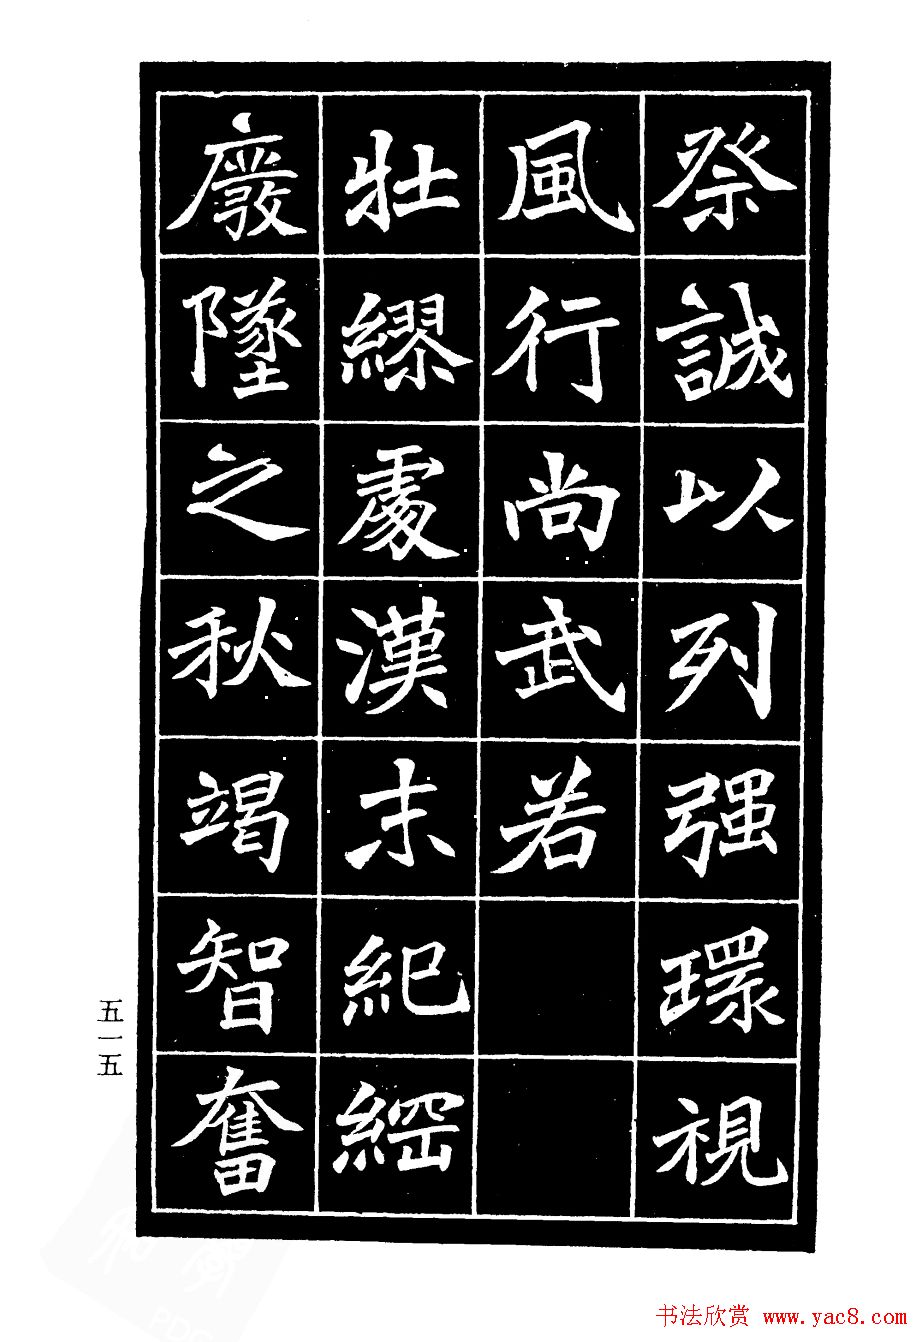 祭誠以列强環視
風行尚武若
壯繆處漢末紀綱
廢墜之秋竭智奮
五一五
书法欣赏 www.yac8.com